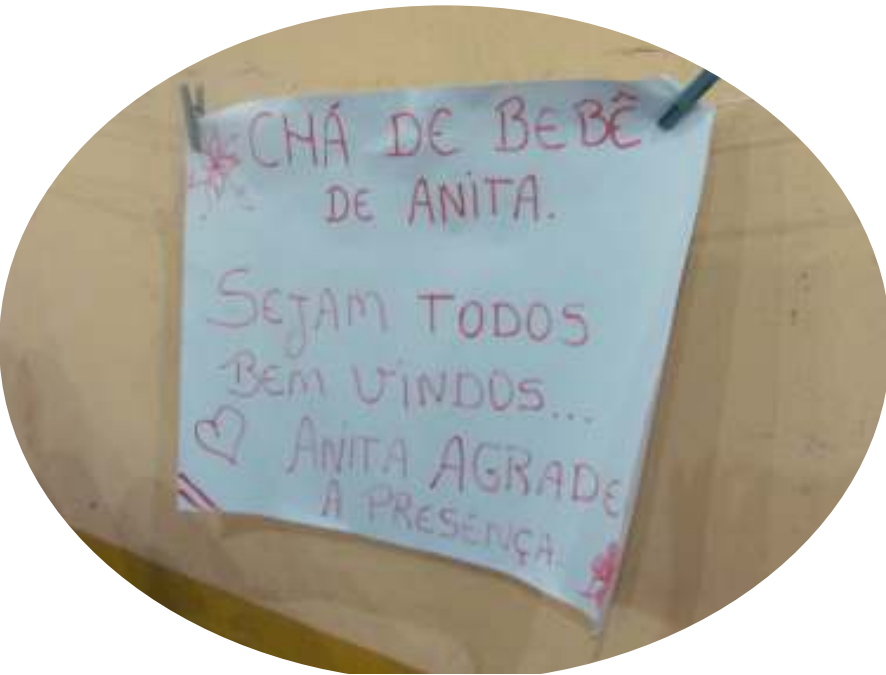 CHÁ DE BEBÊ
DE ANITA.
SEJAM TODOS
BEM VINDOS...
ANITA AGRADE
A PRESENÇA.